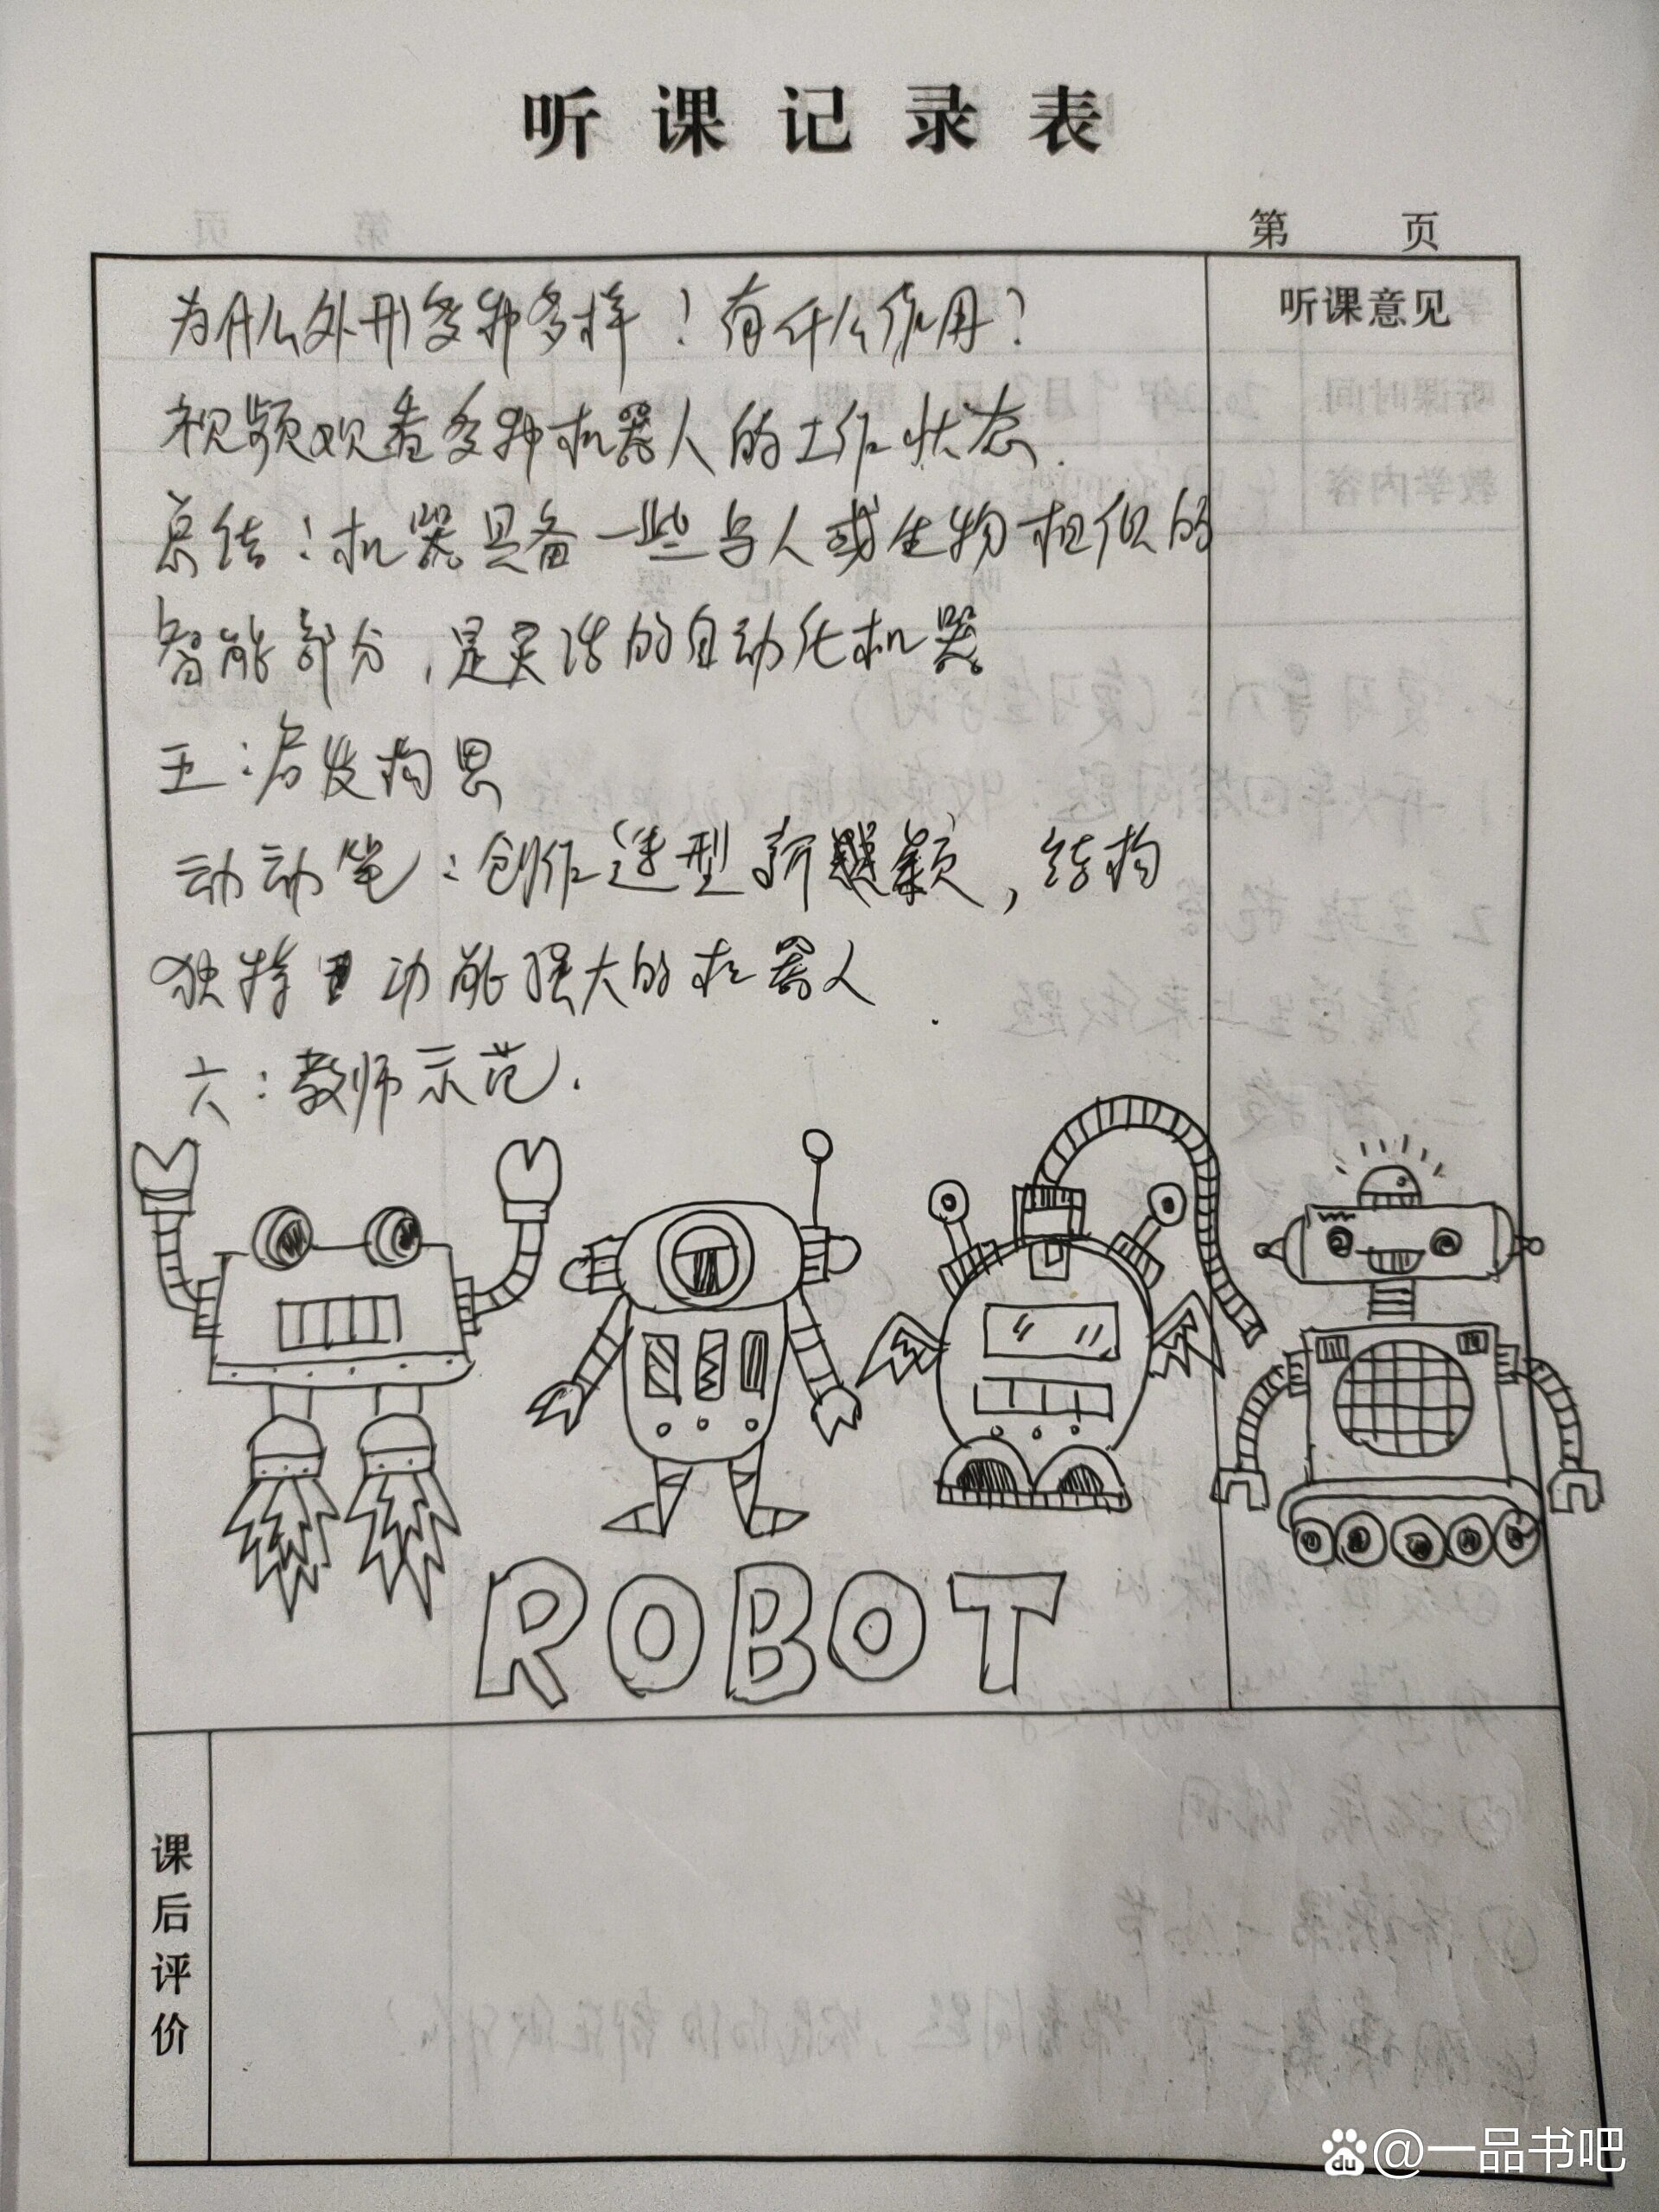 听课记录表
第 页
听课意见
为什么外形多种多样！有什么作用？
视频观看多种机器人的工作状态.
总结：机器具备一些与人或生物相似的
智能部分，是灵活的自动化机器
五：启发构思
动动笔：创作造型新颖，结构
独特 功能强大的机器人.
六：教师示范.
ROBOT
课后评价
du @一品书吧